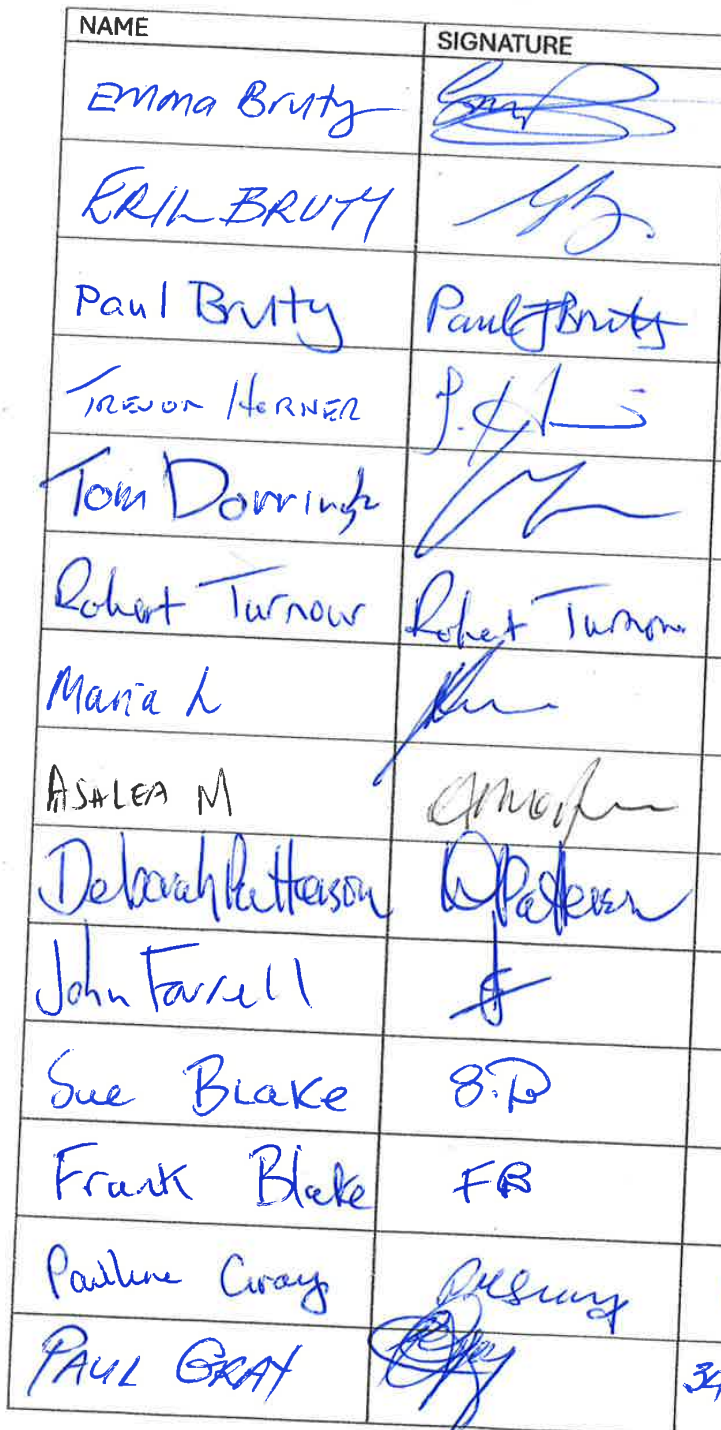 NAME SIGNATURE
Emma Bruty
ERIL BRUTY
Paul Bruty Paul J Bruty
TREVOR HORNER
Tom
Robert Turnour Robert Turnour
Maria L
ASHLEA M
Deborah Patterson D Patterson
John Farrell
Sue Blake S.B
Frank Blake FB
Pauline Gray
PAUL GRAY 34